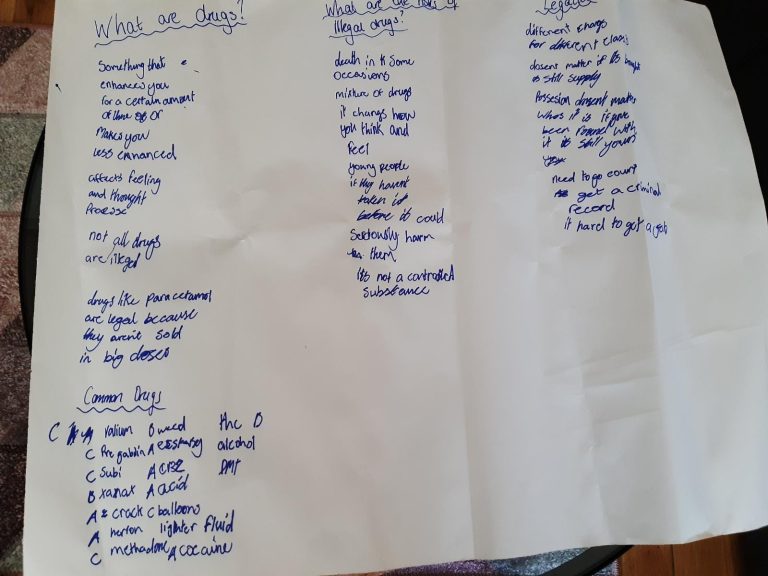 What are drugs?
Something that
enhances you
for a certain amount
of time or
makes you
less enhanced
affects feeling
and thought
process
not all drugs
are illegal
drugs like paracetamol
are legal because
they arent sold
in big doses
Common Drugs
C A valium B weed thc B
C Pregablin A esstasy alcohol
C Subi A DMT
B xanax A acid
A crack C balloons
A heroin lighter fluid
C methadone A cocaine
What are the risks of
Illegal drugs?
death in some
occasions
mixture of drugs
it change how
you think and
feel
young people
if they havent
taken it
before it could
seriously harm
them
its not a controlled
substance
different charges
for different class
dosent matter if its bought
is still supply
Possesion dosent matter
whos it is if your
been found with
it is still yours
need to go court
get a criminal
record
it hard to get a job